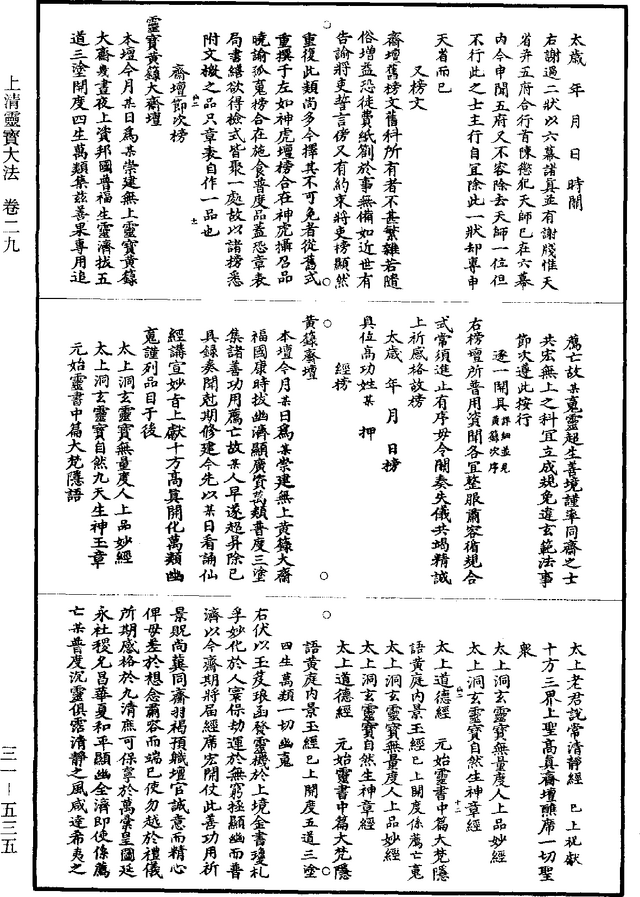 上清靈寶大法 卷二九
三一－五三五
太歲 年 月 日 時聞
右謝過二狀以六幕諸真並有謝牋惟天
省并五府合行首陳愆犯天師已在六幕
內今申聞五府又不容除去天師一位但
不行此之士主行自宜除此一狀却專申
天省而已
又榜文
齋壇舊榜文舊科所有者不甚繁雜若隨
俗增益恐徒費紙劄於事無備如近世有
告諭將吏誓言傍又有約束將吏榜顯然
重復此類尚多今擇其不可免者從舊式
重撰于左如神虎壇榜合在神虎攝召品
曉諭孤蒐榜合在施食普度品蓋恐章表
局書繕欲得檢式皆聚一處故以諸榜悉
附文檄之品只章表自作一品也
齋壇節次榜
靈寶黃籙大齋壇
本壇今月某日為某崇建無上靈寶黃籙
大齋幾晝夜上資邦國普福生靈濟拔五
道三塗開度四生萬類集茲善果專用追
薦亡故某蒐靈超生善境謹率同齋之士
共宏無上之科宜立成規免違玄範法事
節次遵此按行
逐一開具詳細並見黃籙次序
右榜壇所普用資聞各宜整服肅容循規合
式常須進止有序毋令關奏失儀共竭精誠
上祈感格故榜
太歲 年 月 日榜
具位高功姓某 押
經榜
黃籙齋壇
本壇今月某日為某崇建無上黃籙大齋
福國康時拔幽濟顯廣資萬類普度三塗
集諸善功用薦亡故某人早遂超昇除已
具錄奏聞尅期修建今先以某日看誦仙
經講宣妙旨上獻十方高真開化萬類幽
蒐謹列品目于後
太上洞玄靈寶無量度人上品妙經
太上洞玄靈寶自然九天生神玉章
元始靈書中篇大梵隱語
太上老君說常清靜經 已上祝獻
十方三界上聖高真齋壇醮席一切聖
眾
太上洞玄靈寶無量度人上品妙經
太上洞玄靈寶自然生神章經
太上道德經 元始靈書中篇大梵隱
語黃庭內景玉經已上開度係薦亡蒐
太上洞玄靈寶無量度人上品妙經
太上洞玄靈寶自然生神章經
太上道德經 元始靈書中篇大梵隱
語黃庭內景玉經已上開度五道三塗
四生萬類一切幽蒐
右伏以玉芨琅函發靈機於上境金書瓊札
孚妙化於人寰保劫運於無窮拯顯幽而普
濟以今齋期將屆經席宏開仗此善功用祈
景貺尚冀同齋羽褐預職壇官誠意而精心
俾毋差於想念肅容而端已使勿越於禮儀
所期感格於九清應可保寧於萬彙皇圖延
永社稷允昌華夏和平顯幽全濟即使係薦
亡某普度沉靈俱霑清靜之風咸達希夷之